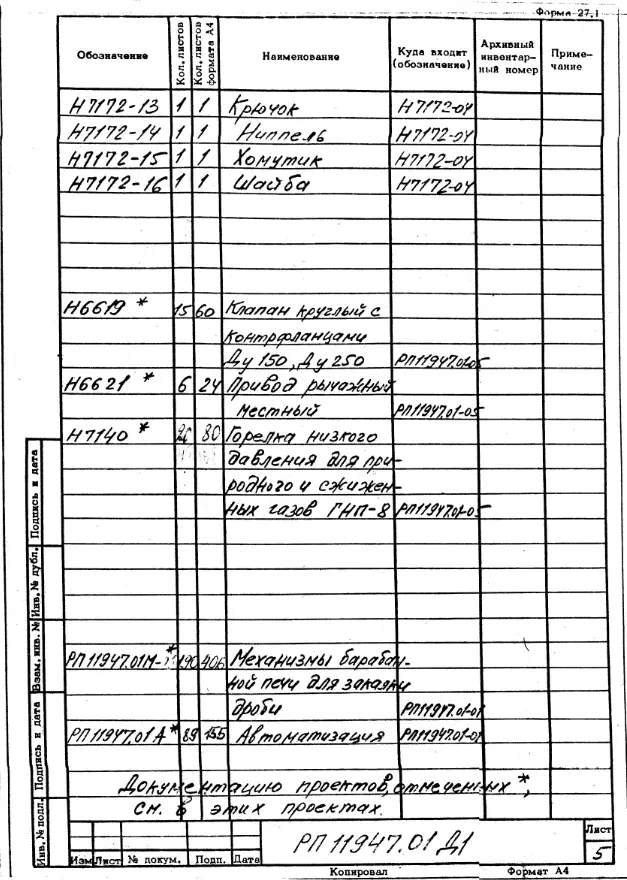 Форма 27.1
Обозначение Кол. листов Кол. листов формата А4 Наименование Куда входит (обозначение) Архивный инвентарный номер Примечание
Н7172-13 1 1 Крючок Н7172-04
Н7172-14 1 1 Ниппель Н7172-04
Н7172-15 1 1 Хомутик Н7172-04
Н7172-16 1 1 Шайба Н7172-04
Н6619 * 15 60 Клапан круглый с
контрфланцами
Ду 150, Ду 250 РП11947.01-05
Н6621 * 6 24 Привод рычажный
местный РП11947.01-05
Н7140 * 80 Горелка низкого
давления для при-
родного и сжижен-
ных газов ГНП-8 РП11947.01-05
РП11947.01М- * 190 406 Механизмы барабан-
ной печи для закалки
дроби РП11947.01-01
РП11947.01А * 89 155 Автоматизация РП11947.01-01
Документацию проектов, отмеченных *,
см. в этих проектах.
Инв. № подл. Подпись и дата Взам. инв. № Инв. № дубл. Подпись и дата
РП 11947.01 Д1
Лист
5
Изм Лист № докум. Подп. Дата
Копировал Формат А4